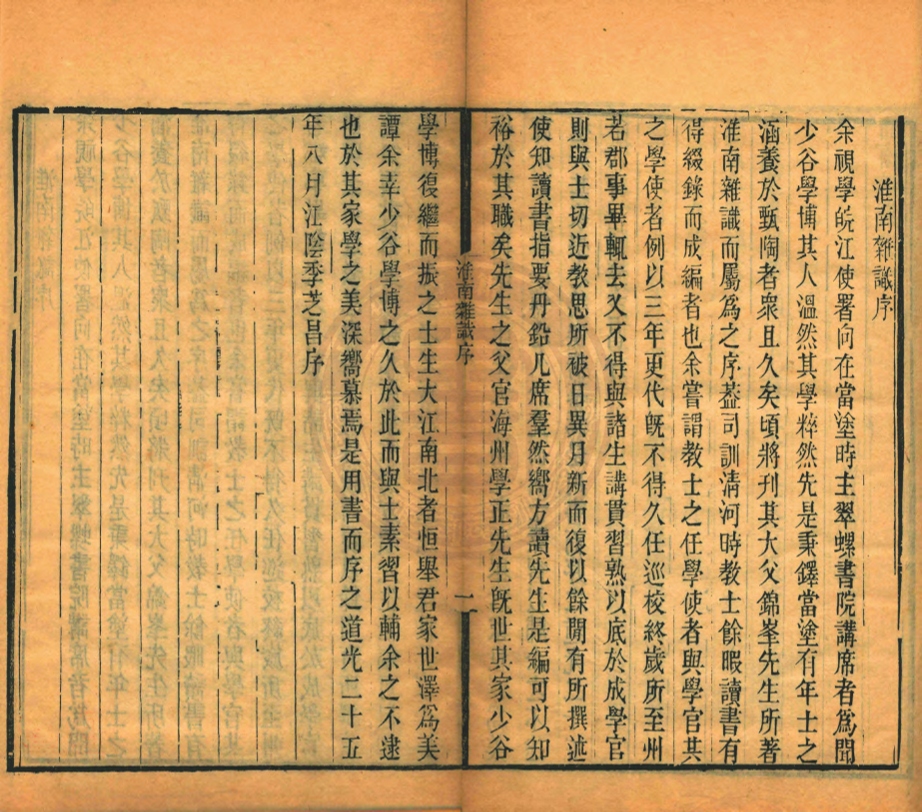 淮南雜識序
余視學皖江使署向在當塗時主翠螺書院講席者爲聞
少谷學博其人溫然其學粹然先是秉鐸當塗有年士之
涵養於甄陶者衆且久矣頃將刋其大父錦峯先生所著
淮南雜識而屬爲之序葢司訓清河時教士餘暇讀書有
得綴錄而成編者也余嘗謂教士之任學使者與學官共
之學使者例以三年更代旣不得久任巡校終歲所至州
若郡事畢輒去又不得與諸生講貫習熟以底於成學官
則與士切近教思所被日異月新而復以餘閒有所撰述
使知讀書指要丹鉛几席羣然嚮方讀先生是編可以知
裕於其職矣先生之父官海州學正先生旣世其家少谷
淮南雜識序
一
學博復繼而振之士生大江南北者恒舉君家世澤爲美
譚余幸少谷學博之久於此而與士素習以輔余之不逮
也於其家學之美深嚮慕焉是用書而序之道光二十五
年八月江陰季芝昌序